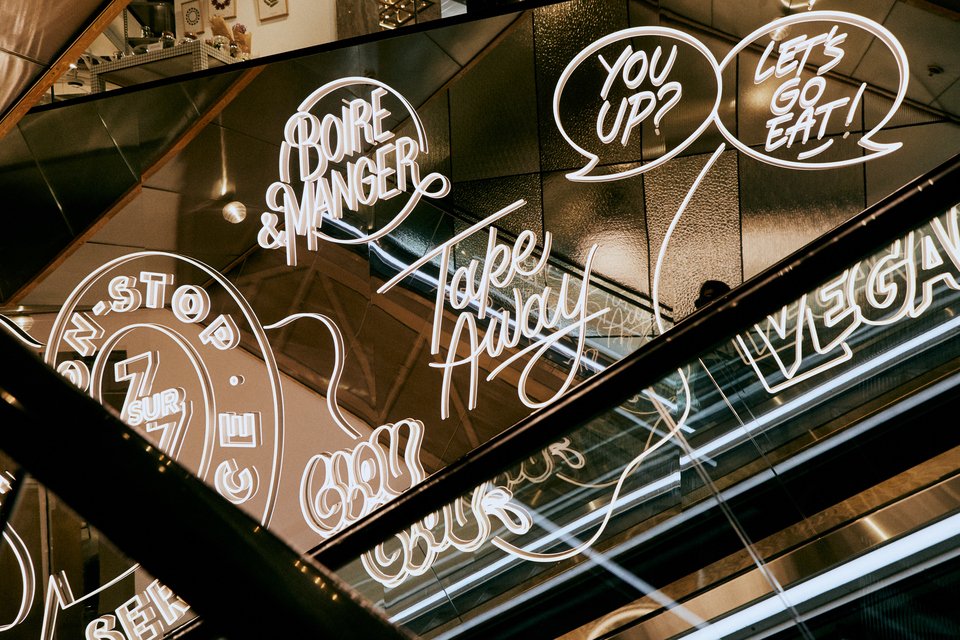 YOU
UP?
LET'S
GO
EAT!
BOIRE
&MANGER
Take
Away
N-STOP
7
SUR
7
VEGA